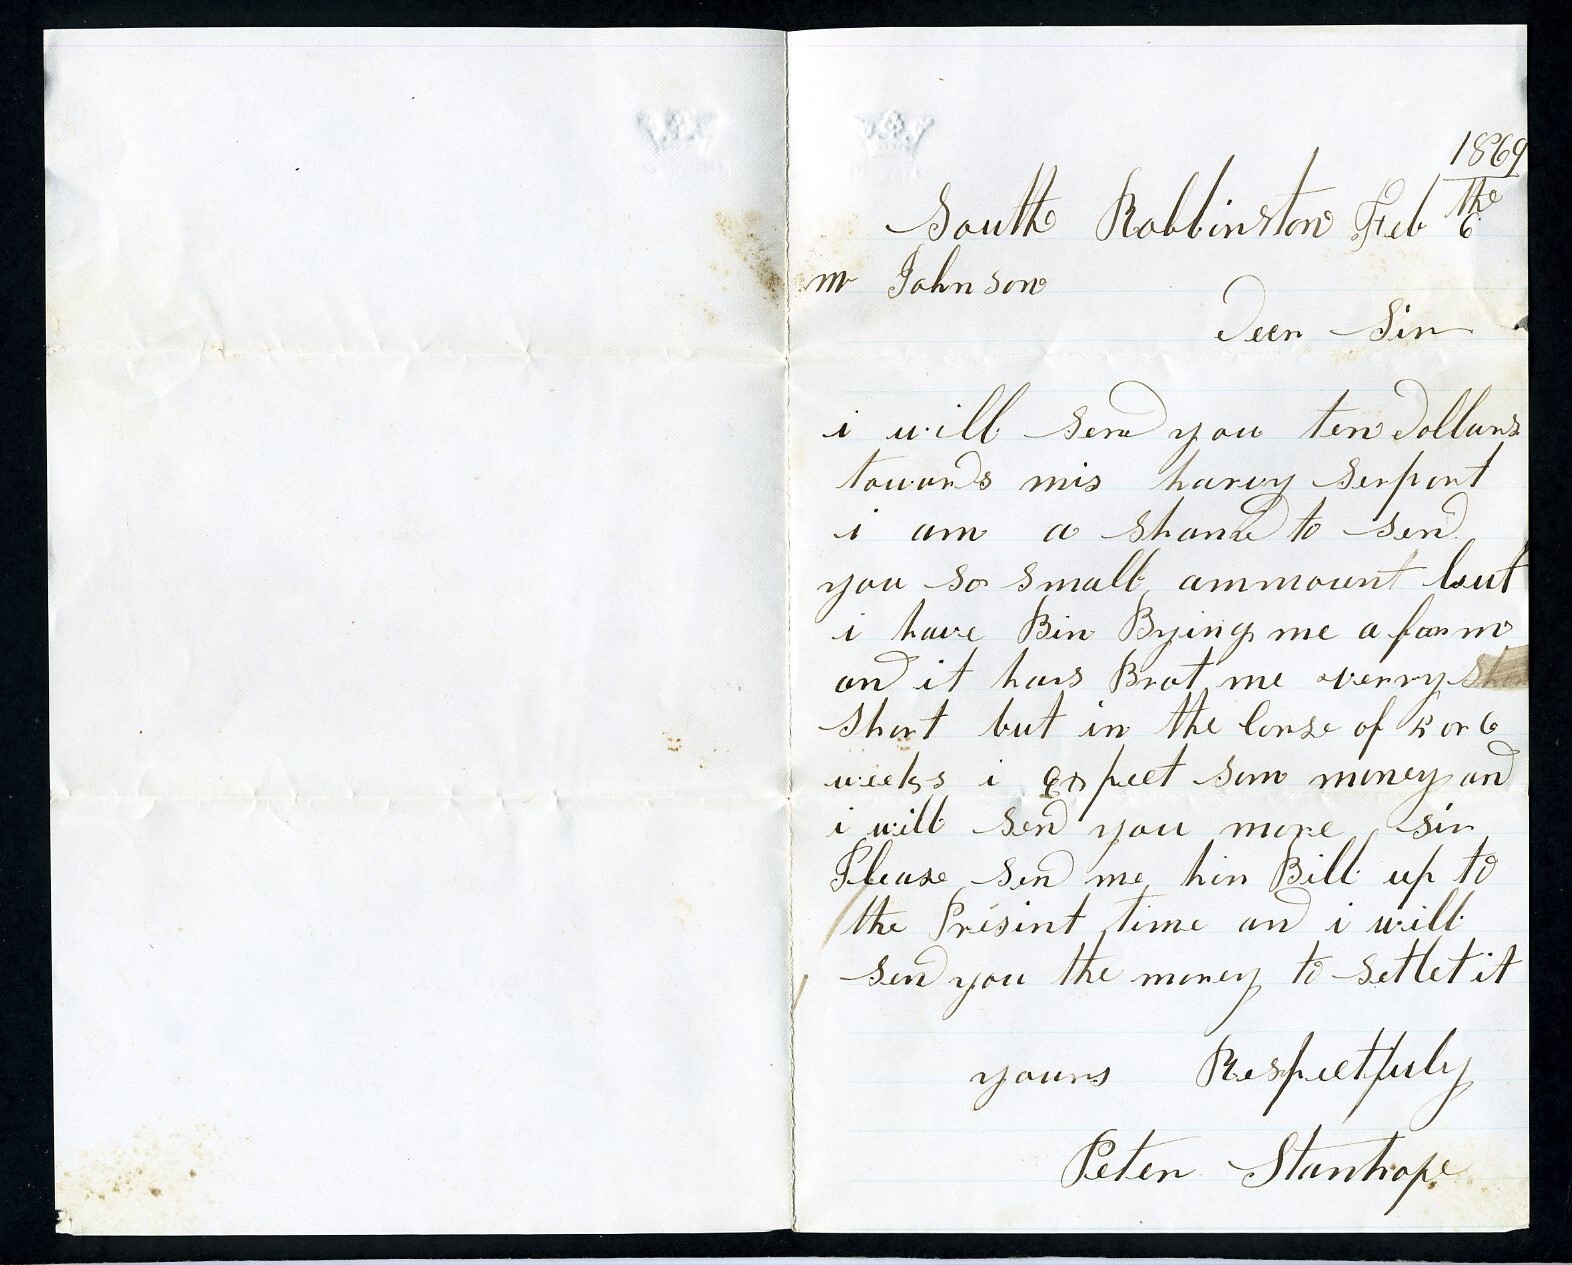 1869
South Robbinston Feb the 6
Mr Johnson
Deer Sir
i will send you ten dollars
towards mis harvy serport
i am a shamed to send
you so small ammount but
i have Bin Bying me a farm
and it has Brot me verry
short but in the Corse of 5 or 6
weeks i expect som money and
i will send you more sir
Please send me hir Bill up to
the Presint time and i will
send you the money to setlet it
yours Respectfuly
Peter Stanhope